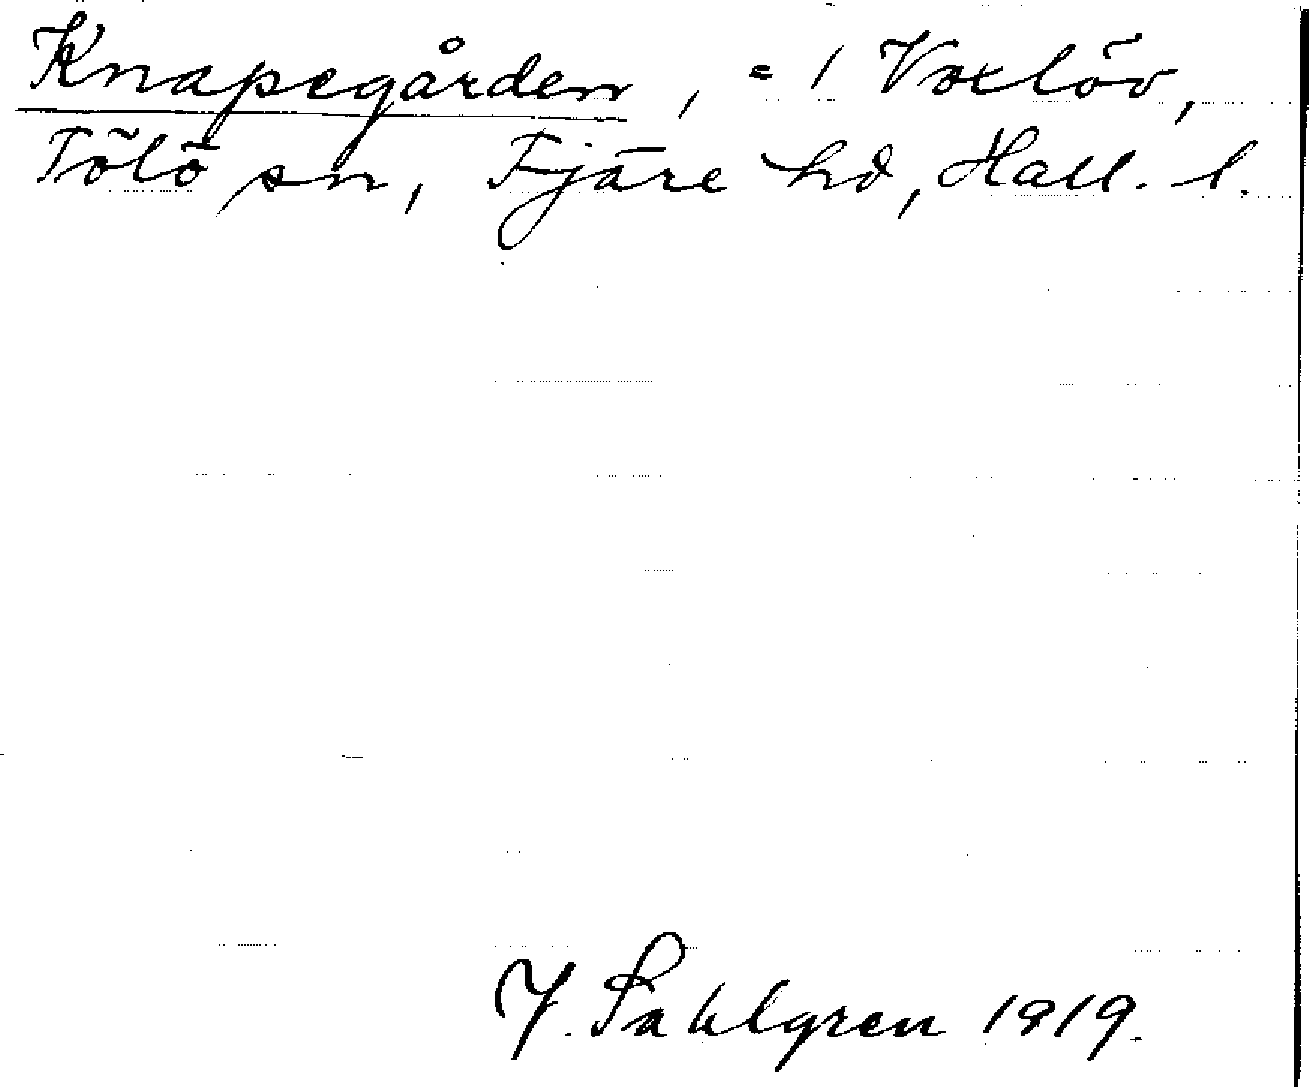 Knapegården, = 1 Voxlöv,
Tölö sn, Fjäre hd, Hall. l.
J. Sahlgren 1919.